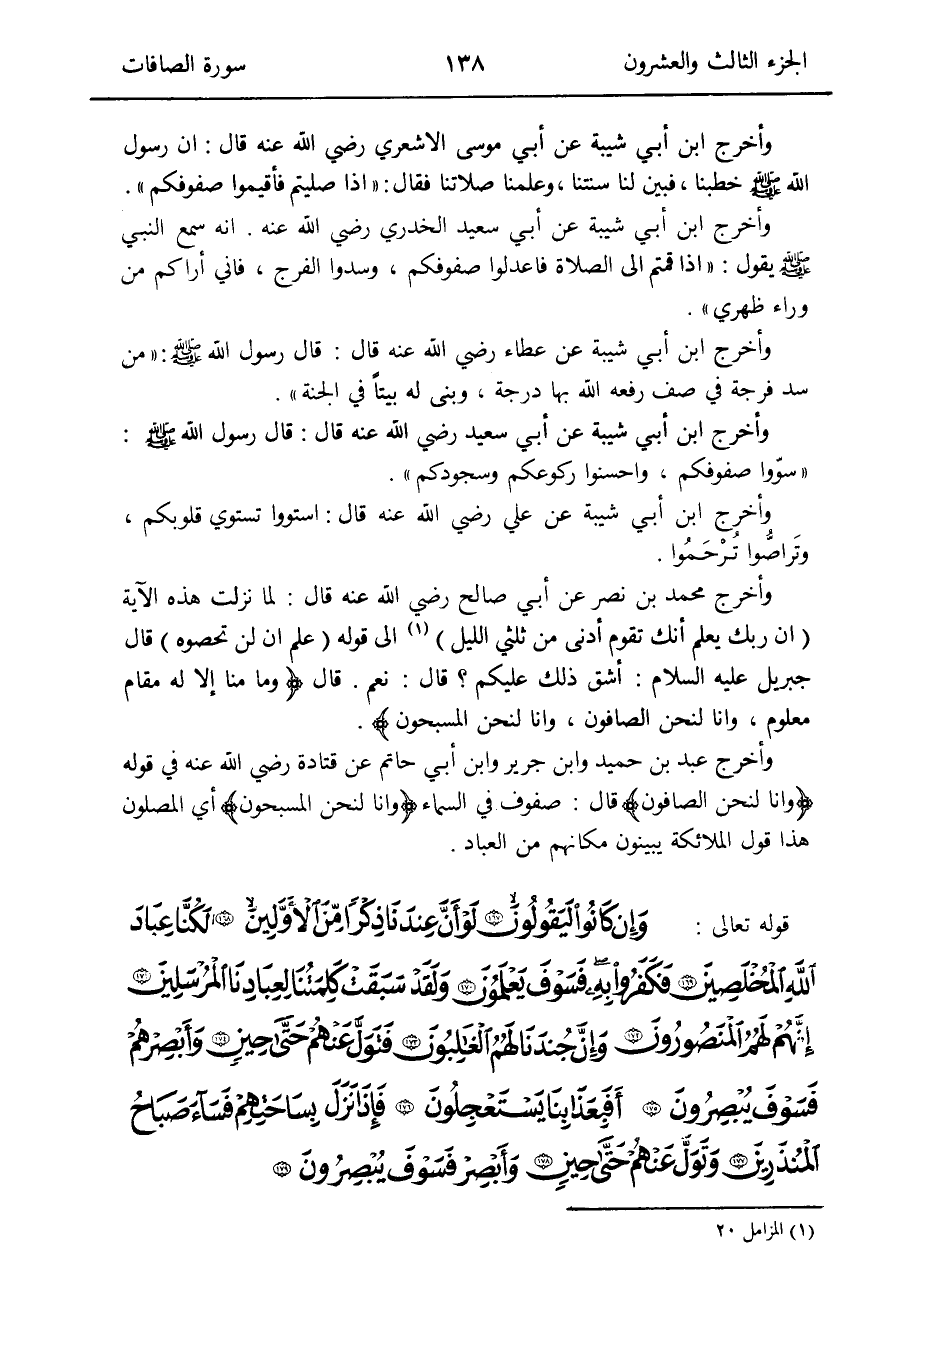 الجزء الثالث والعشرون ١٣٨ سورة الصافات
وأخرج ابن أبي شيبة عن أبي موسى الاشعري رضي الله عنه قال : ان رسول
الله ﷺ خطبنا ، فبين لنا سنتنا ، وعلمنا صلاتنا فقال : « اذا صليتم فأقيموا صفوفكم » .
وأخرج ابن أبي شيبة عن أبي سعيد الخدري رضي الله عنه . انه سمع النبي
ﷺ يقول : « اذا قمتم الى الصلاة فاعدلوا صفوفكم ، وسدوا الفرج ، فاني أراكم من
وراء ظهري » .
وأخرج ابن أبي شيبة عن عطاء رضي الله عنه قال : قال رسول الله ﷺ : « من
سد فرجة في صف رفعه الله بها درجة ، وبنى له بيتاً في الجنة » .
وأخرج ابن أبي شيبة عن أبي سعيد رضي الله عنه قال : قال رسول الله ﷺ :
« سوّوا صفوفكم ، واحسنوا ركوعكم وسجودكم » .
وأخرج ابن أبي شيبة عن علي رضي الله عنه قال : استووا تستوي قلوبكم ،
وتَراصُّوا تُرْحَمُوا .
وأخرج محمد بن نصر عن أبي صالح رضي الله عنه قال : لما نزلت هذه الآية
( ان ربك يعلم أنك تقوم أدنى من ثلثي الليل ) (١) الى قوله ( علم ان لن تحصوه ) قال
جبريل عليه السلام : أشق ذلك عليكم ؟ قال : نعم . قال ﴿ وما منا إلا له مقام
معلوم ، وانا لنحن الصافون ، وانا لنحن المسبحون ﴾ .
وأخرج عبد بن حميد وابن جرير وابن أبي حاتم عن قتادة رضي الله عنه في قوله
﴿وانا لنحن الصافون﴾ قال : صفوف في السماء ﴿وانا لنحن المسبحون﴾ أي المصلون
هذا قول الملائكة يبينون مكانهم من العباد .
قوله تعالى : وَإِن كَانُوا۟ لَيَقُولُونَ ١٦٧ لَوْ أَنَّ عِندَنَا ذِكْرًا مِّنَ ٱلْأَوَّلِينَ ١٦٨ لَكُنَّا عِبَادَ
ٱللَّهِ ٱلْمُخْلَصِينَ ١٦٩ فَكَفَرُوا۟ بِهِۦ فَسَوْفَ يَعْلَمُونَ ١٧٠ وَلَقَدْ سَبَقَتْ كَلِمَتُنَا لِعِبَادِنَا ٱلْمُرْسَلِينَ ١٧١
إِنَّهُمْ لَهُمُ ٱلْمَنصُورُونَ ١٧٢ وَإِنَّ جُندَنَا لَهُمُ ٱلْغَٰلِبُونَ ١٧٣ فَتَوَلَّ عَنْهُمْ حَتَّىٰ حِينٍ ١٧٤ وَأَبْصِرْهُمْ
فَسَوْفَ يُبْصِرُونَ ١٧٥ أَفَبِعَذَابِنَا يَسْتَعْجِلُونَ ١٧٦ فَإِذَا نَزَلَ بِسَاحَتِهِمْ فَسَآءَ صَبَاحُ
ٱلْمُنذَرِينَ ١٧٧ وَتَوَلَّ عَنْهُمْ حَتَّىٰ حِينٍ ١٧٨ وَأَبْصِرْ فَسَوْفَ يُبْصِرُونَ ١٧٩
(١) المزامل ٢٠